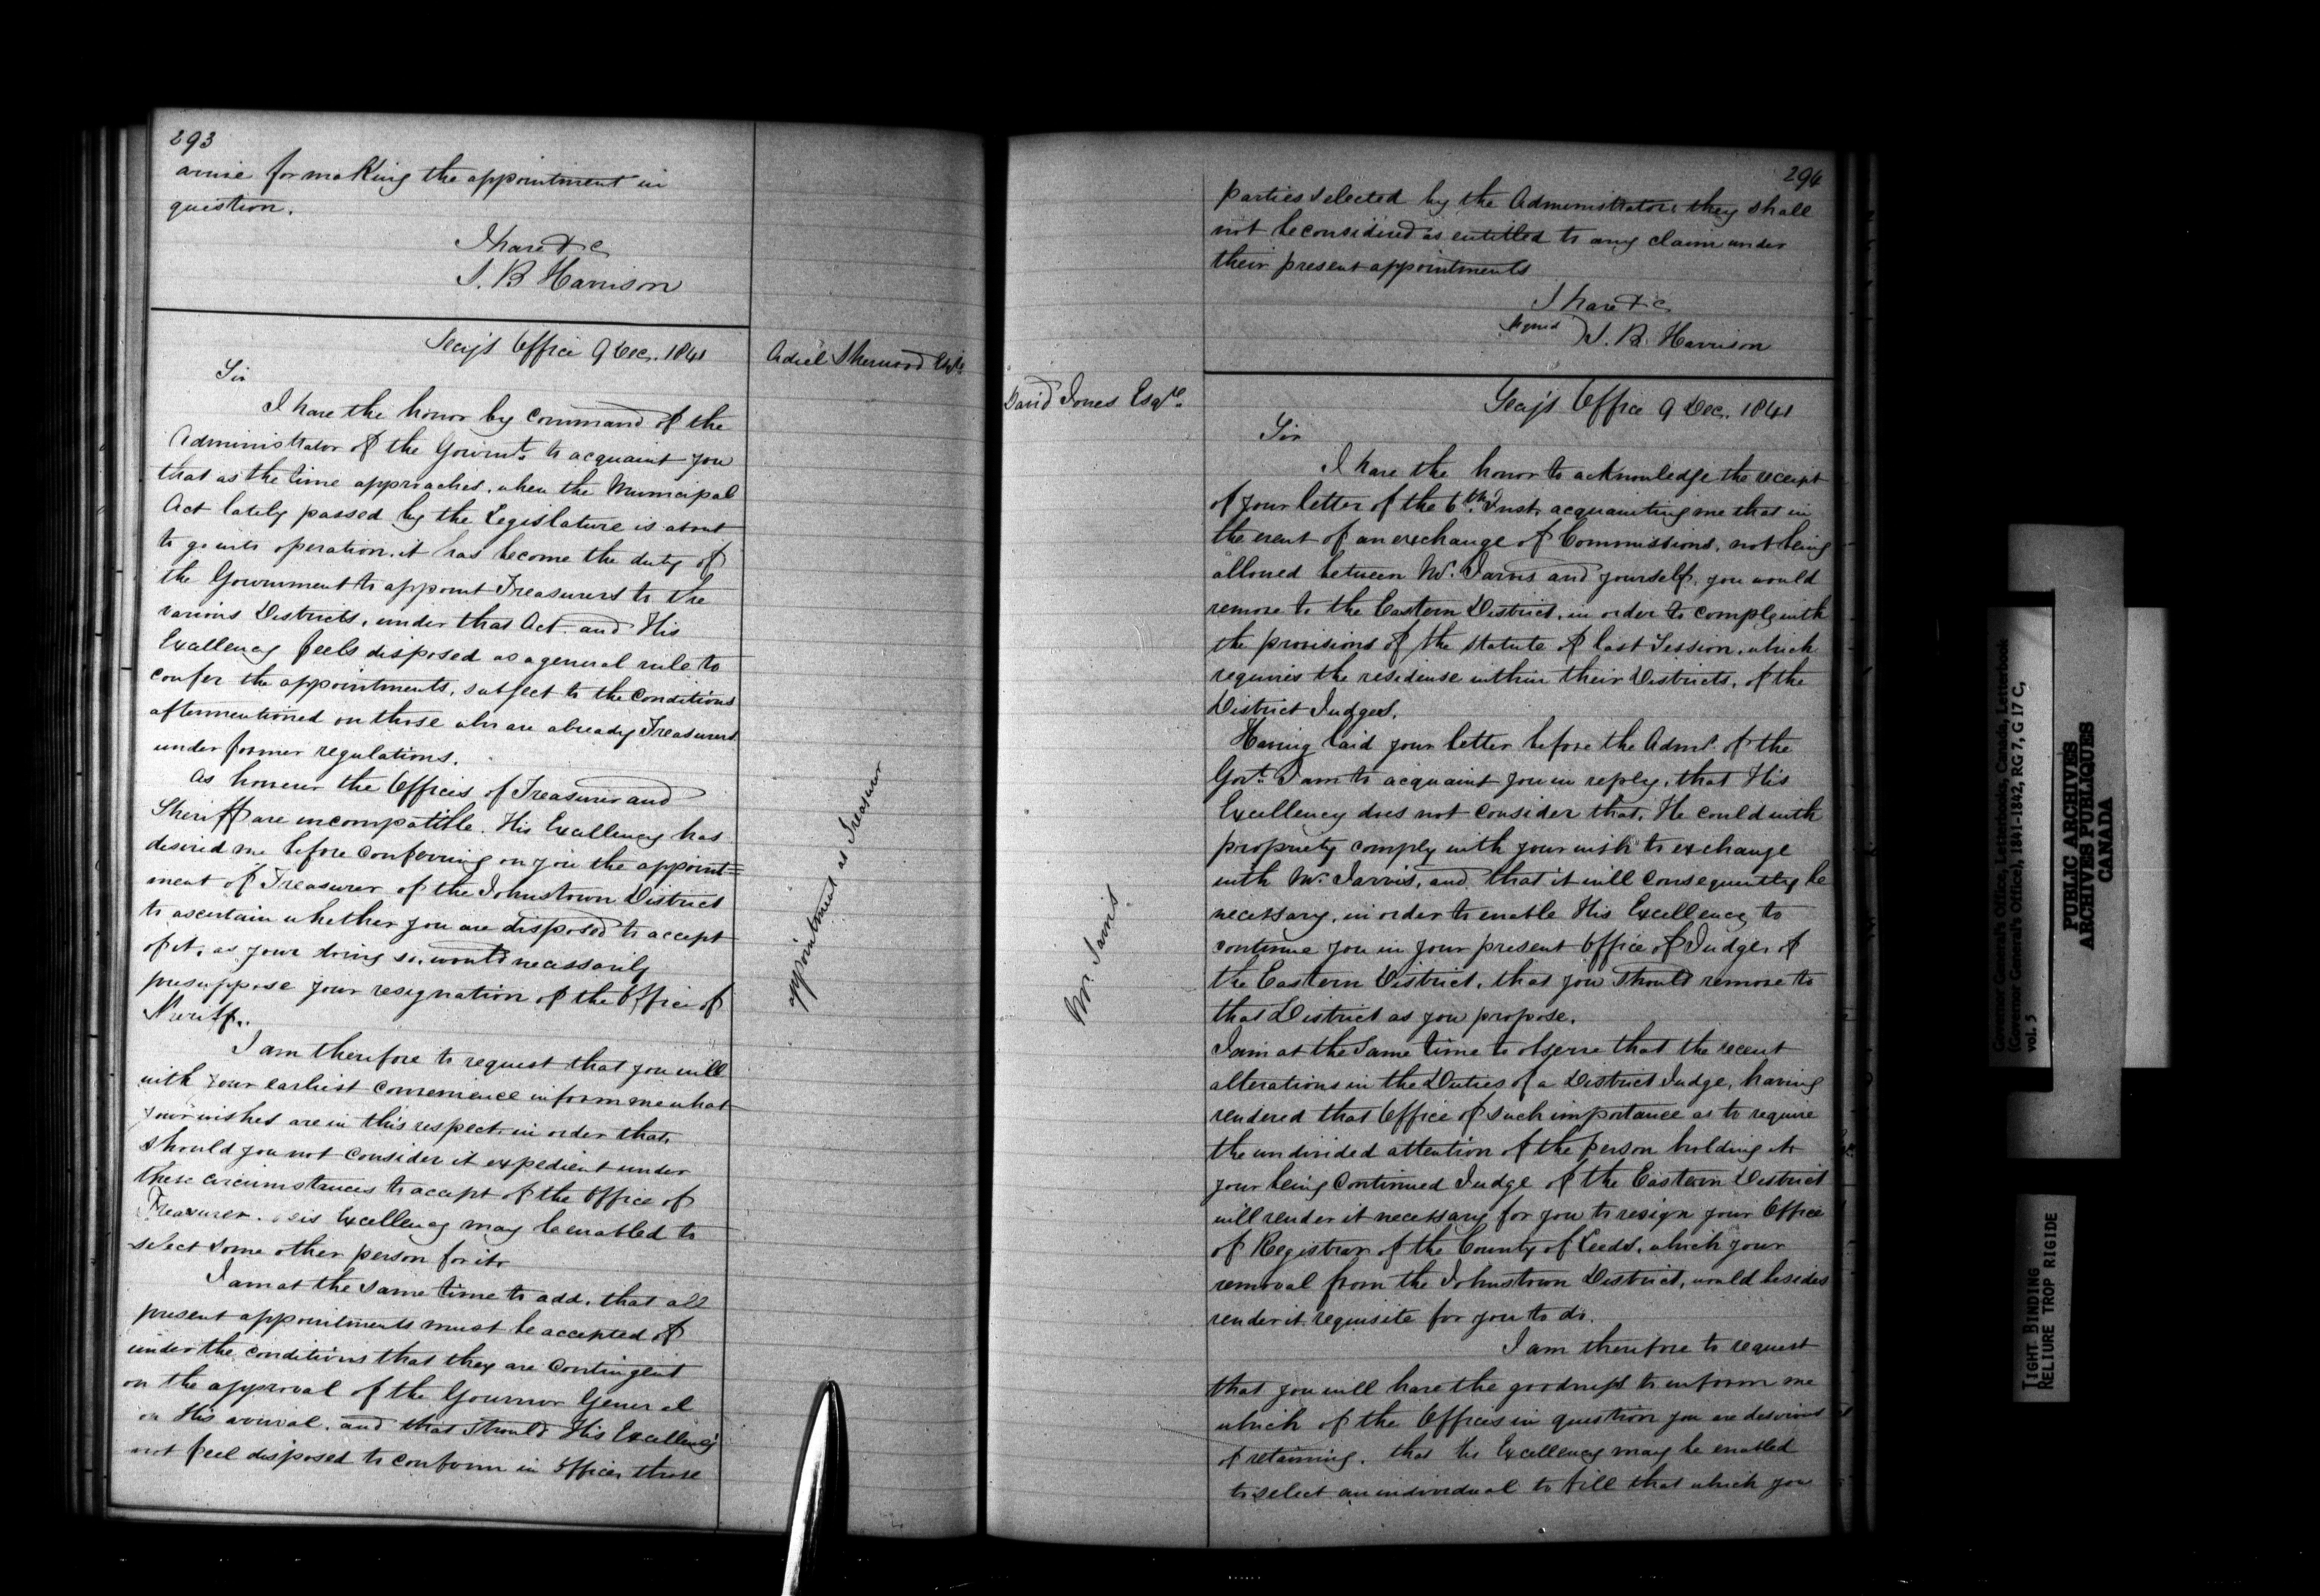 293
arise for making the appointment in
question.
I have &c
S. B Harrison
Secy's Office 9 Dec. 1841
Adiel Sherwood Esqre
Sir
I have the honor by command of the
Administrator of the Govermt. to acquaint you
that as the time approaches, when the Municipal
Act lately passed by the Legislature is about
to go into operation, it has become the duty of
the Government to appoint Treasurers to the
various Districts, under that Act. and His
Excellency feels disposed as a general rule to
confer the appointments, subject to the conditions
aftermentioned on those who are already Treasurers
under former regulations.
As however the Offices of Treasurer and
Sheriff are incompatible. His Excellency has
desired me before conferring on you the appoint=
ment of Treasurer of the Johnstown District
to ascertain whether you are disposed to accept
of it, as your doing so, would necessarily
presuppose your resignation of the Office of
Sheriff.
appointment as Treasurer
I am therefore to request that you will
with your earliest convenience inform me what
your wishes are in this respect, in order that,
should you not consider it expedient under
these circumstances to accept of the Office of
Treasurer. His Excellency may be enabled to
select some other person for it.
I am at the same time to add, that all
present appointments must be accepted of
under the conditions that they are contingent
on the approval of the Governor General
on His arrival. and that should His Excellency
not feel disposed to confirm in Office, those
294
parties selected by the Administrator, they shall
not be considered as entitled to any claim under
their present appointments
I have &c
signed) S. B. Harrison
Secy's Office 9 Dec. 1841
David Jones Esqre.
Sir
I have the honor to acknowledge the receipt
of your letter of the 6th. Inst. acquainting me that in
the event of an exchange of Commissions, not being
allowed between Mr. Jarvis and yourself, you would
remove to the Eastern District, in order to comply with
the provisions of the statute of last Session, which
requires the residense within their Districts, of the
District Judges.
Having laid your letter before the Admr. of the
Govt. I am to acquaint you in reply, that His
Excellency does not consider that, He could with
propriety comply with your wish to exchange
with Mr. Jarvis, and that it will consequently be
necessary, in order to enable His Excellency to
continue you in your present Office of Judge, of
the Eastern District, that you should remove to
that District as you propose.
Mr. Jarvis
I am at the same time to observe that the recent
alterations in the Duties of a District Judge, having
rendered that Office of such importance as to require
the undivided attention of the person holding it
your being Continued Judge of the Eastern District
will render it necessary for you to resign your Office
of Registrar of the County of Leeds, which your
removal from the Johnstown District, would besides
render it requisite for you to do.
I am therefore to request
that you will have the goodness to inform me
which of the Offices in question you are desirous
of retaining. that His Excellency may be enabled
to select an individual to fill that which you
Governor General's Office, Letterbooks, Canada, Letterbook
(Governor General's Office), 1841-1842, RG 7, G 17 C,
vol. 5
PUBLIC ARCHIVES
ARCHIVES PUBLIQUES
CANADA
TIGHT BINDING
RELIURE TROP RIGIDE